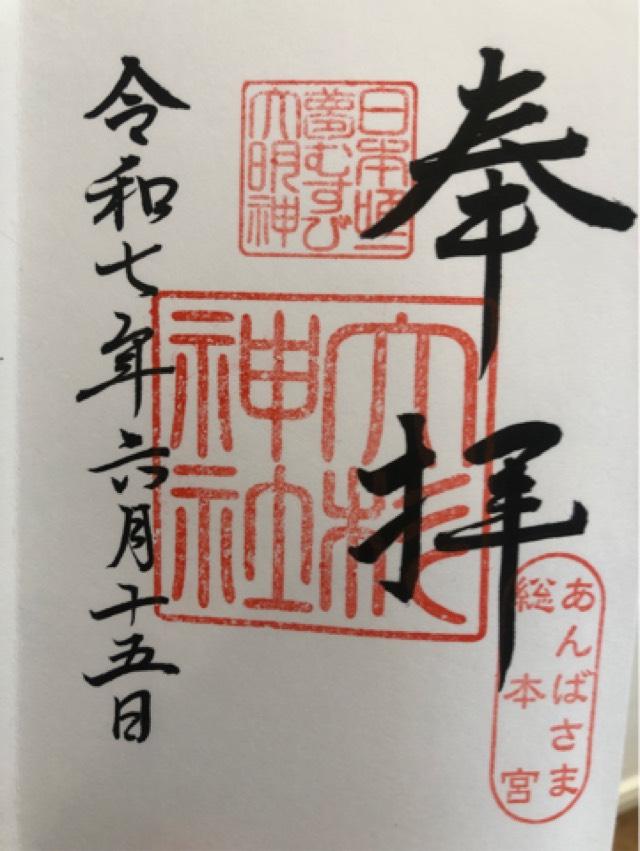 奉拝
あんばさま
総本宮
日本唯一
夢むすび
大明神
大杉
神社
令和七年六月十五日